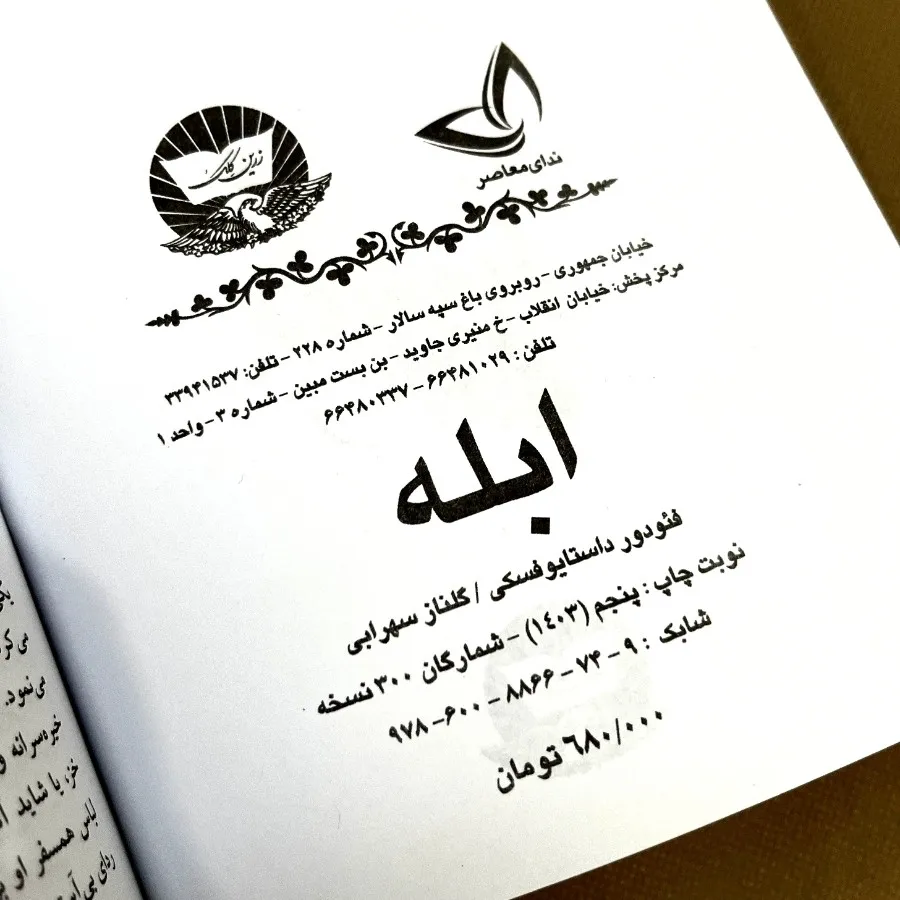 زرین کلک
ندای معاصر
خیابان جمهوری - روبروی باغ سپه سالار - شماره ۲۲۸ - تلفن: ۳۳۹۴۱۵۳۷
مرکز پخش: خیابان انقلاب - خ منیری جاوید - بن بست مبین - شماره ۳ - واحد ۱
تلفن : ۶۶۴۸۱۰۲۹ - ۶۶۴۸۰۳۳۷
ابله
فئودور داستایوفسکی / گلناز سهرابی
نوبت چاپ : پنجم (۱۴۰۳) - شمارگان ۳۰۰ نسخه
شابک : ۹ - ۷۴ - ۸۸۶۶ - ۶۰۰ - ۹۷۸
۶۸۰/۰۰۰ تومان
می‌نمود.
خیره‌سرانه و
خز، یا شاید
لباس همسفر او